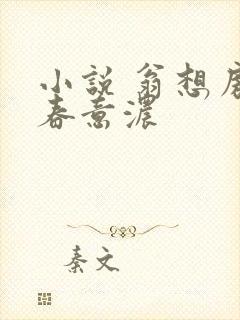 小說 翁想
春意濃
秦文